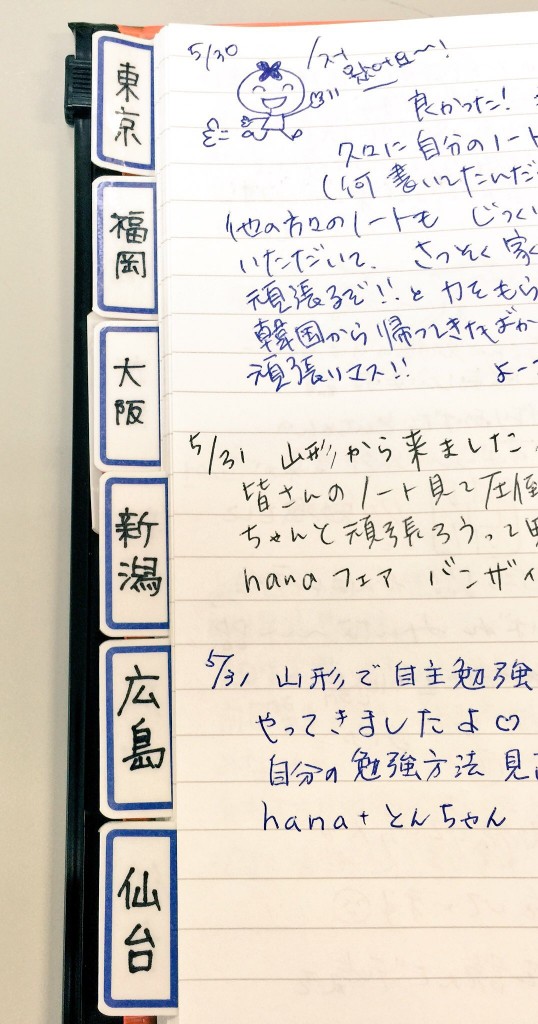 東京
福岡
大阪
新潟
広島
仙台
5/30
왔어요~~!
良かった!
久々に自分のノート
(何書いてたんだ
他の方々のノートも じっくり
いただいて、さっそく家
頑張るぞ!!と力をもら
韓国から帰ってきたばか
頑張りマス!! よー
5/31 山形から来ました。
皆さんのノート見て圧倒
ちゃんと頑張ろうって思
hanaフェア バンザイ
5/31 山形で自主勉強
やってきましたよ♡
自分の勉強方法 見
hana+とんちゃん